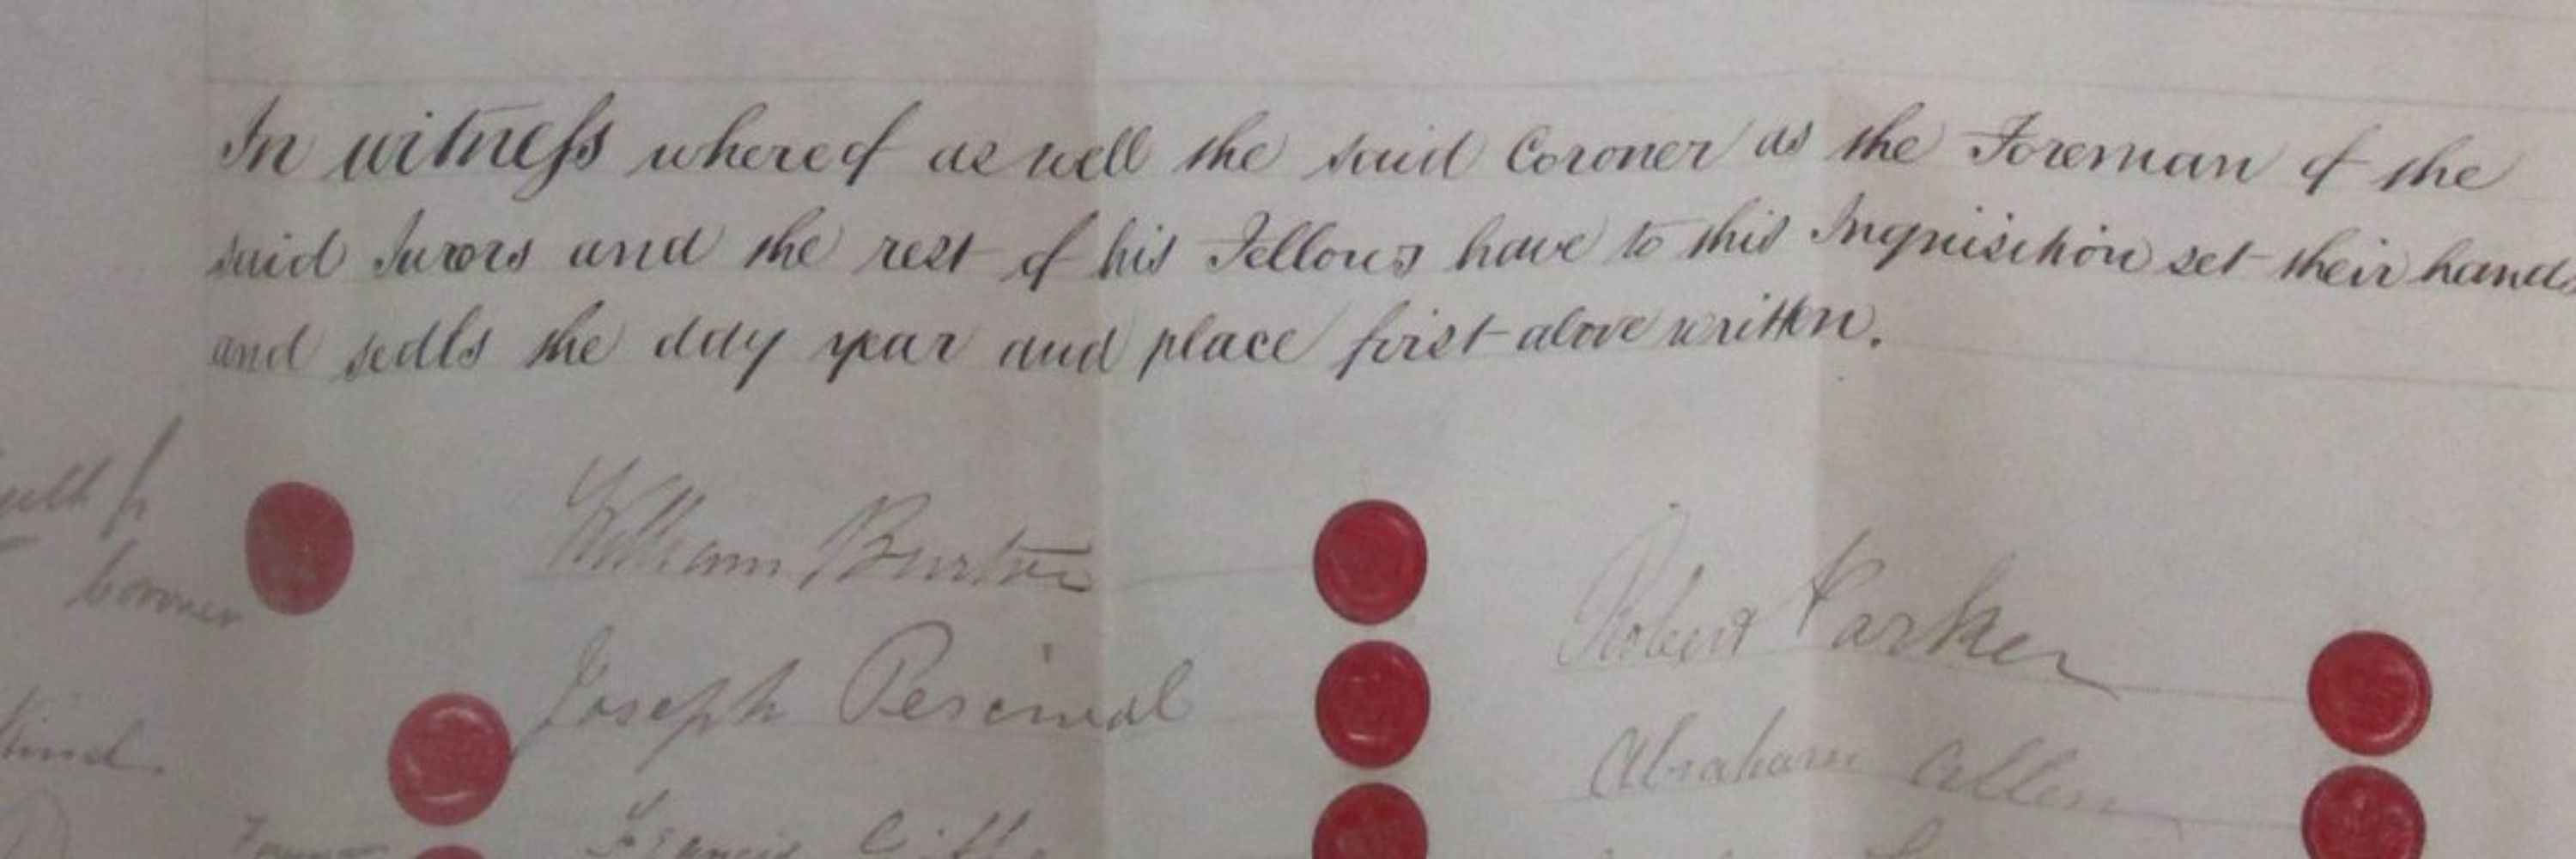 In witness whereof as well the said Coroner as the Foreman of the
said Jurors and the rest of his Fellows have to this Inquisition set their hands
and seals the day year and place first above written.
William Burton
Robert Parker
Coroner
Joseph Percival
Abraham Allen
Francis